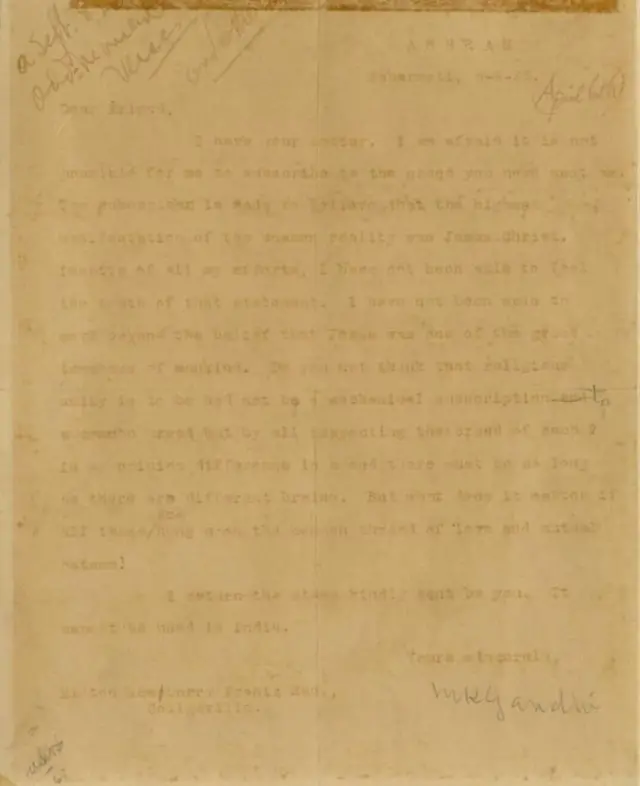 a Sept. 8
ASHRAM
Sabarmati, 6-4-26.
April 6th
Dear Friend,
I have your letter. I am afraid it is not
possible for me to subscribe to the creed you have sent me.
The subscriber is made to believe that the highest
manifestation of the unseen reality was Jesus Christ.
Inspite of all my efforts, I have not been able to feel
the truth of that statement. I have not been able to
move beyond the belief that Jesus was one of the great
teachers of mankind. Do you not think that religious
unity is to be had not by a mechanical subscription to
a common creed but by all respecting the creed of each ?
In my opinion difference in creed there must be so long
as there are different brains. But what does it matter if
all these / are hung upon the common thread of love and mutual
esteem!
I return the stamp kindly sent by you. It
cannot be used in India.
Yours sincerely,
Milton Newberry Frantz Esq.,
MKGandhi
Collegeville.